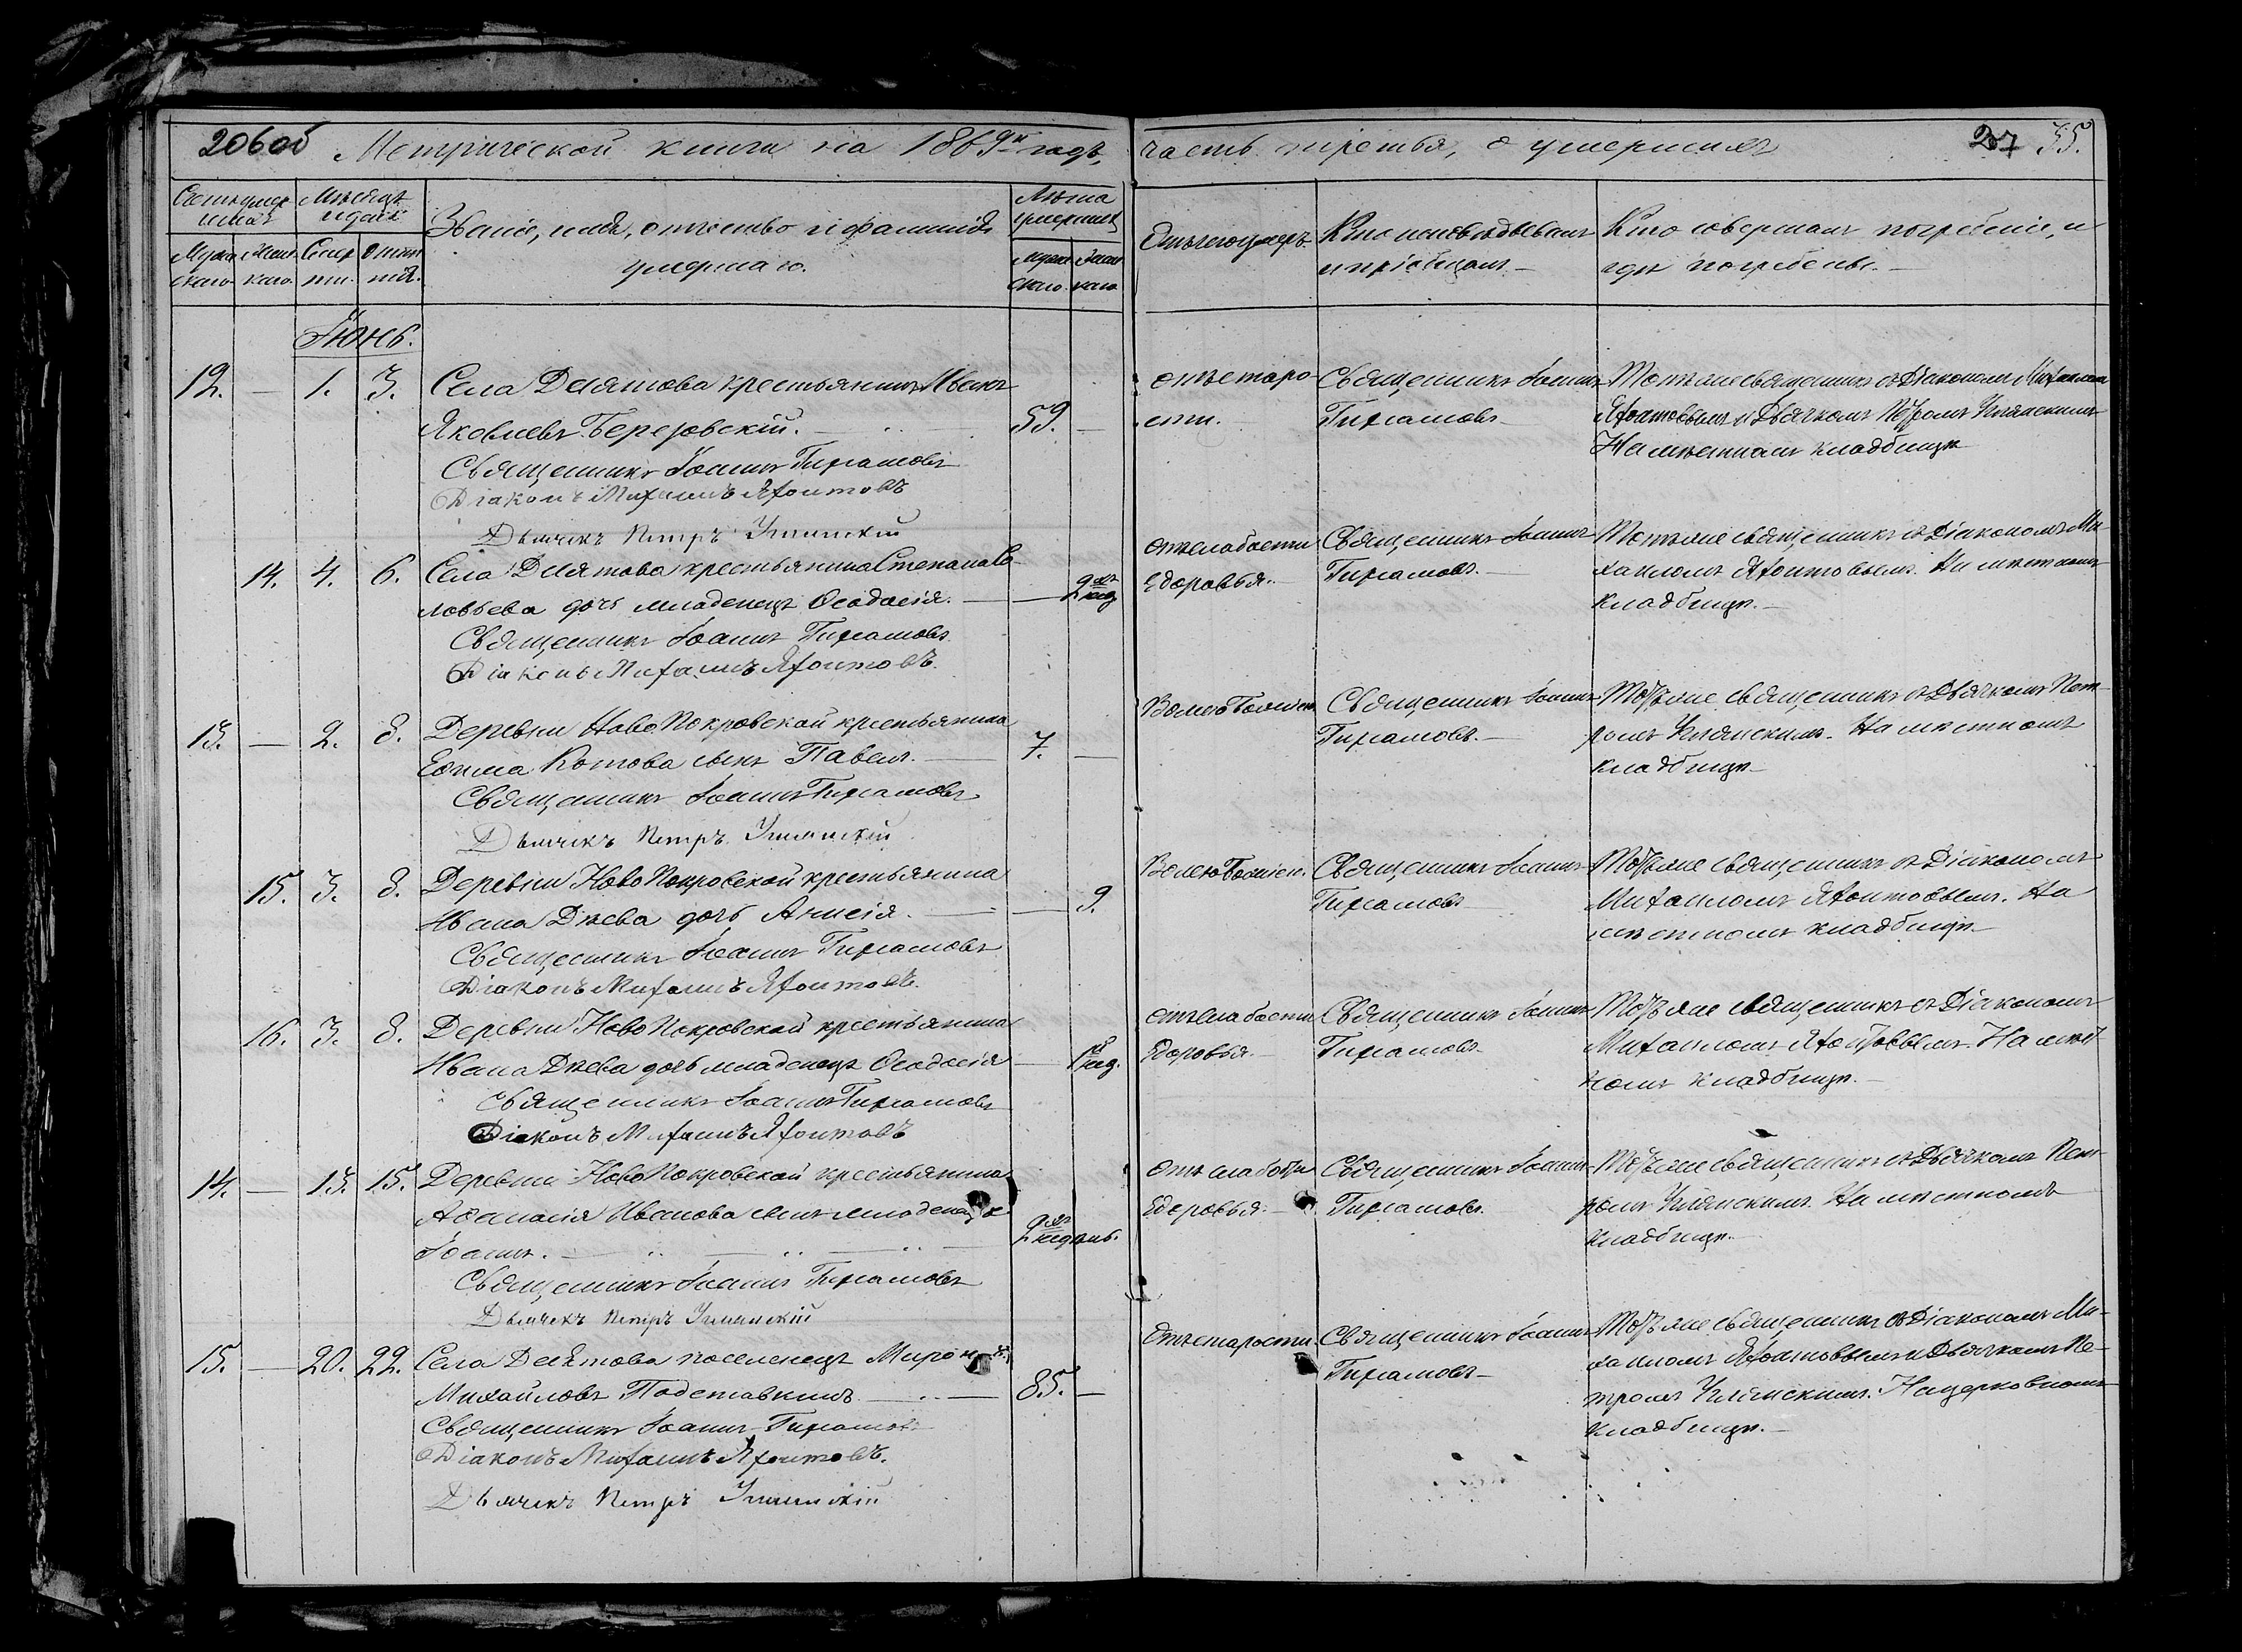 206 об Метрической книги на 1869й годъ,
часть третья, о умершихъ
27 35.
Счетъ умершихъ
Мѣсяцъ и день
Званіе, имя, отчество и фамилія
умершаго.
Лѣта умершихъ
Мужскаго. Женскаго. Смерти. Отпѣтія.
Мужескаго. Женскаго.
Отъ чего умеръ.
Кто исповѣдывалъ
и пріобщалъ
Кто совершалъ погребеніе, и
гдѣ погребены.
Іюнь.
12. — 1. 3. Села Деѧтова крестьянинъ Иванъ
Яковлевъ Березовскій. — 59. —
Священникъ Іоаннъ
Діаконъ Михаилъ Яхонтовъ
Дьячекъ Петръ
от старо-
сти.
Священникъ Іоаннъ
Тотъ же священникъ съ Діакономъ Михаиломъ
Яхонтовымъ и Дьячкомъ Петромъ
На мѣстномъ кладбищѣ
14. 4. 6. Села крестьянина Степана Со-
ловьева дочь младенецъ Ѳеодосія. — 2 нед
Священникъ Іоаннъ
Діаконъ Михаилъ Яхонтовъ.
отъ слабости
здоровья.
Священникъ Іоаннъ
Тотъ же священникъ съ Діакономъ Ми-
хаиломъ Яхонтовымъ. На мѣстномъ
кладбищѣ. —
13. — 2. 8. Деревни НовоПокровской крестьянина
Ефима Котова сынъ Павелъ. — 7. —
Священникъ Іоаннъ
Дьячекъ Петръ
Волею Божіею
Священникъ Іоаннъ
Тотъ же священникъ съ Дьячкомъ Пет-
ромъ На мѣстномъ
кладбищѣ
15. 3. 8. Деревни НовоПокровской крестьянина
Ивана дочь Анисія. — 9.
Священникъ Іоаннъ
Діаконъ Михаилъ Яхонтовъ.
Волею Божіею.
Священникъ Іоаннъ
Тотъ же священникъ съ Діакономъ
Михаиломъ Яхонтовымъ. На
мѣстномъ кладбищѣ
16. 3. 8. Деревни НовоПокровской крестьянина
Ивана дочь младенецъ Ѳеодосія — 1 нед.
Священникъ Іоаннъ
Діаконъ Михаилъ Яхонтовъ
отъ слабости
здоровья. —
Священникъ Іоаннъ
Тотъ же священникъ съ Діакономъ
Михаиломъ Яхонтовымъ. На мѣст-
номъ кладбищѣ. —
14. — 13. 15. Деревни НовоПокровской крестьянина
Аѳанасія Иванова сынъ младенецъ
Іоаннъ. — 2 нед
Священникъ Іоаннъ
Дьячекъ Петръ
отъ слабости
здоровья. —
Священникъ Іоаннъ
Тотъ же священникъ съ Дьячкомъ Пет-
ромъ На мѣстномъ
кладбищѣ.
15. — 20. 22. Села поселенецъ Миронъ
Михайловъ Подставкинъ — 85. —
Священникъ Іоаннъ
Діаконъ Михаилъ Яхонтовъ.
Дьячекъ Петръ
Отъ старости
Священникъ Іоаннъ
Тотъ же священникъ съ Діакономъ Ми-
хаиломъ Яхонтовымъ и Дьячкомъ Пе-
тромъ На церковномъ
кладбищѣ. —